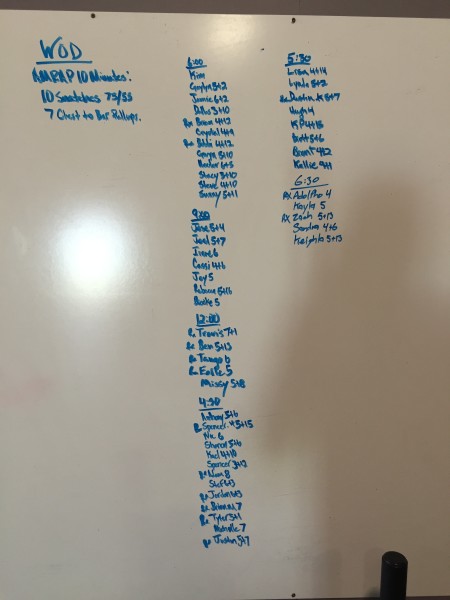 WOD
AMRAP 10 Minutes:
10 Snatches 75/55
7 Chest to Bar Pullups.
6:00
Kim
5+2
Jamie 6+2
3+10
Rx 4+12
Crystal 4+9
Rx 4+12
5+10
6+5
Stacy 3+10
Steve 4+10
Sunny 5+1
9:00
Jane 5+4
Joel 5+7
Irene 6
Cassi 4+6
Joy 5
Rebecca 5+6
5
12:00
Rx Travis 7+1
Rx Ben 5+13
Rx Tango 6
Rx 5
Missy 5+8
4:30
Anthony 5+6
Rx Spencer 5+15
6
Sharon 5+6
4+10
Spencer 3+12
Rx 8
Rx Jordan
Rx Brianna 7
Rx Tyler 5+1
Michelle 7
Rx Justin 5+7
5:30
Lisa 4+14
Lynda 5+2
Rx Dustin 5+7
Hugh 4
KP 4+15
Britt 5+6
Brent 4+2
Kellie 9+1
6:30
RX Adolpho 4
Kayla 5
RX Zach 5+13
Sandra 4+6
Keighla 5+13